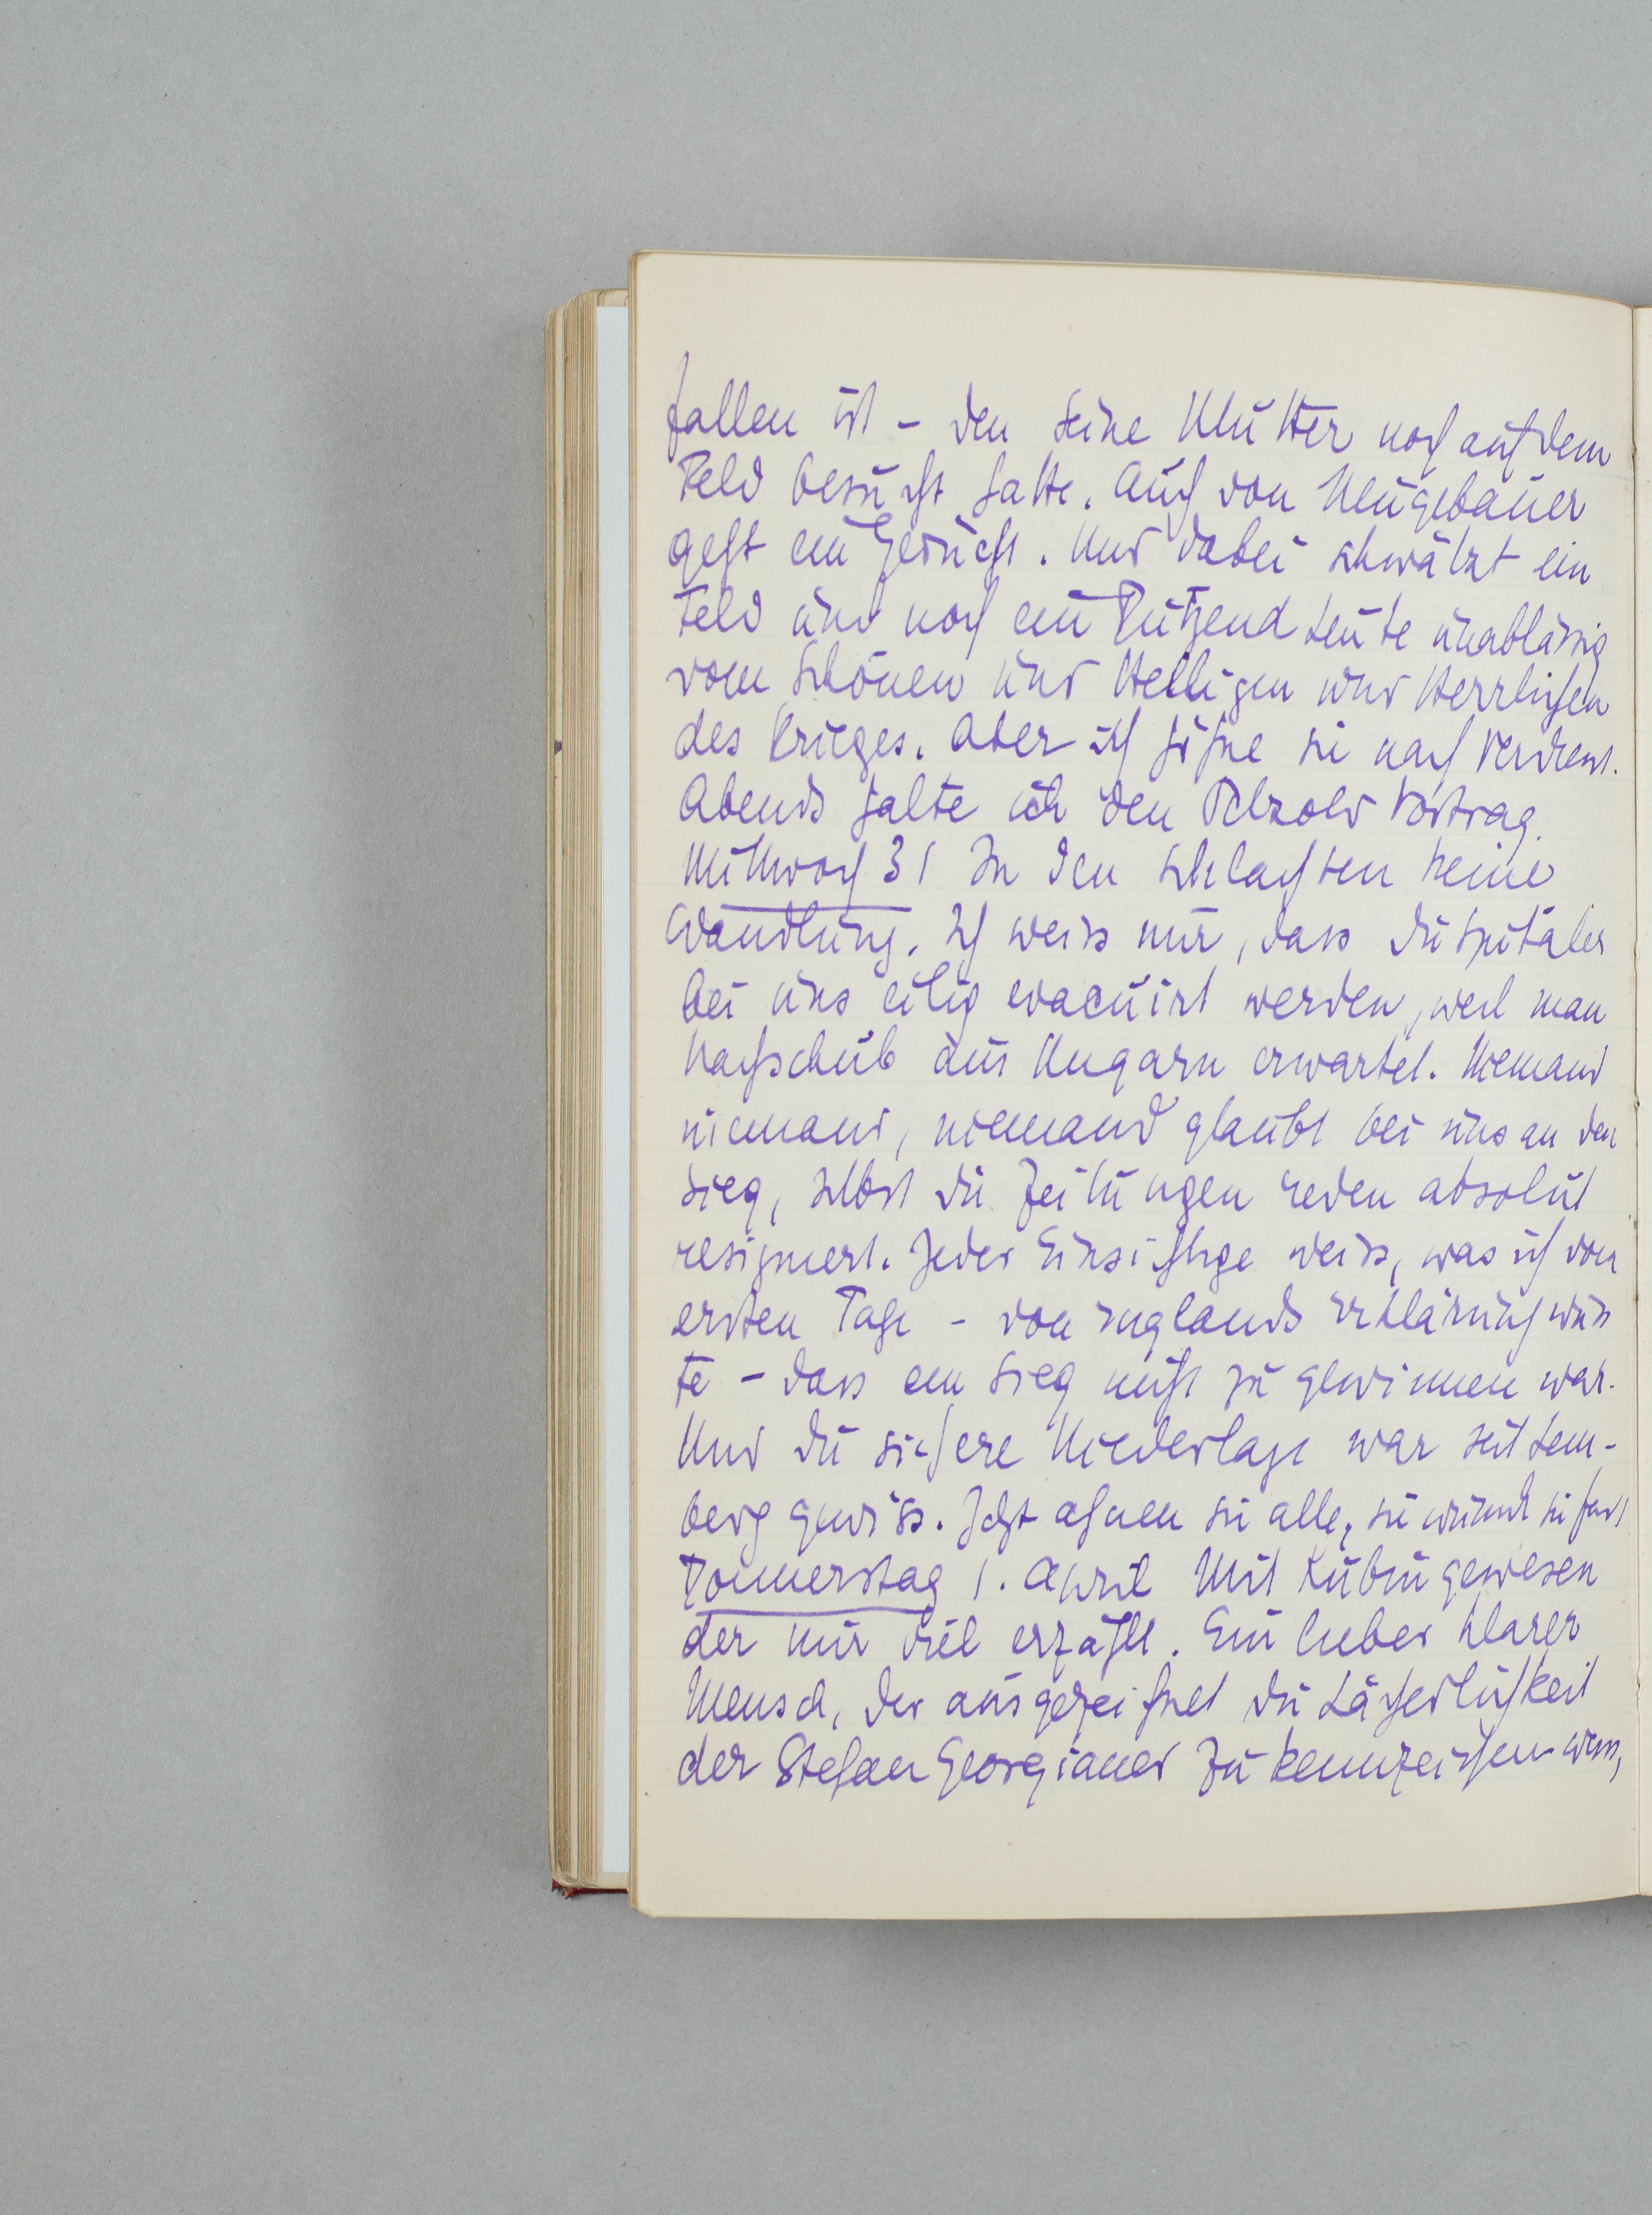 fallen ist – den seine Mutter noch auf dem
Feld besucht hatte. Auch von Neugebauer
geht ein Gerücht. Und dabei schwätzt ein
Feld und noch ein Dutzend Leute unablässig
vom Schönen und Heiligen und Herrlichen
des Krieges. Aber ich höhne sie nach Verdienst.
Abends halte ich den Petzold Vortrag.
Mittwoch 31 In den Schlachten keine
Wandlung. Ich weiss nur, dass die Spitäler
bei uns eilig evacuirt werden, weil man
Nachschub aus Ungarn erwartet. Niemand
niemand, niemand glaubt bei uns an den
Sieg, selbst die Zeitungen reden absolut
resigniert. Jeder Einsichtige weiss, was ich vom
ersten Tage – von Englands Erklärung wuss
te – dass ein Sieg nicht zu gewinnen war.
Und die sichere Niederlage war seit Lem-
berg gewiss. Jetzt ahnen sie alle, sie
Donnerstag 1. April Mit Kubin gewesen
der mir viel erzählt. Ein lieber klarer
Mensch, der ausgezeichnet die Lächerlichkeit
der Stefan Georgianer zu kennzeichnen weiss,